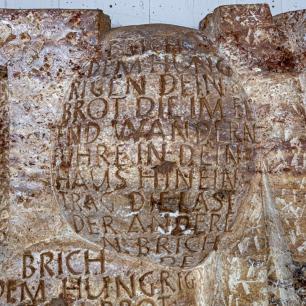 DEM HUNG
RIGEN DEIN
BROT DIE IM EL
END WANDERN
FÜHRE IN DEIN
HAUS HINEIN
TRAG DIE LAST
DER ANDERE
N. BRICH
DE
BRICH
DEM HUNGRIG
BROT